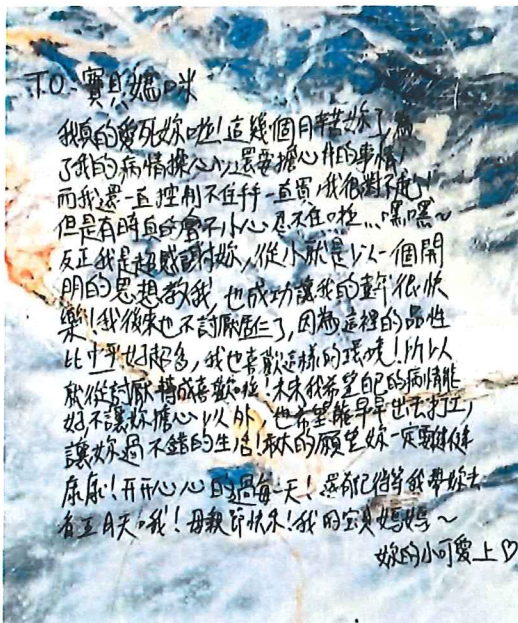 TO. 寶貝媽咪
我真的愛死妳啦!這幾個月辛苦妳了,為
了我的病情擔心以外還要擔心件的事情!
而我還一直控制不住手一直買,我很對不起!
但是有時真的會不小心忍不住啦...嘿嘿~
反正我是超感謝妳,從小就是以一個開
明的思想教我,也成功讓我的童年很快
樂!我後來也不討厭仁了,因為這裡的品性
比中平好超多,我也喜歡這樣的環境!所以
就從討厭轉成喜歡啦!未來我希望自己的病情能
好不讓妳擔心以外,也希望能早早出去打工,
讓妳過不錯的生活!最大的願望妳一定要健健
康康!開開心心的過每一天!還有記得等我帶妳去
看五月天哦!母親節快樂!我的寶貝媽媽~
妳的小可愛上♡